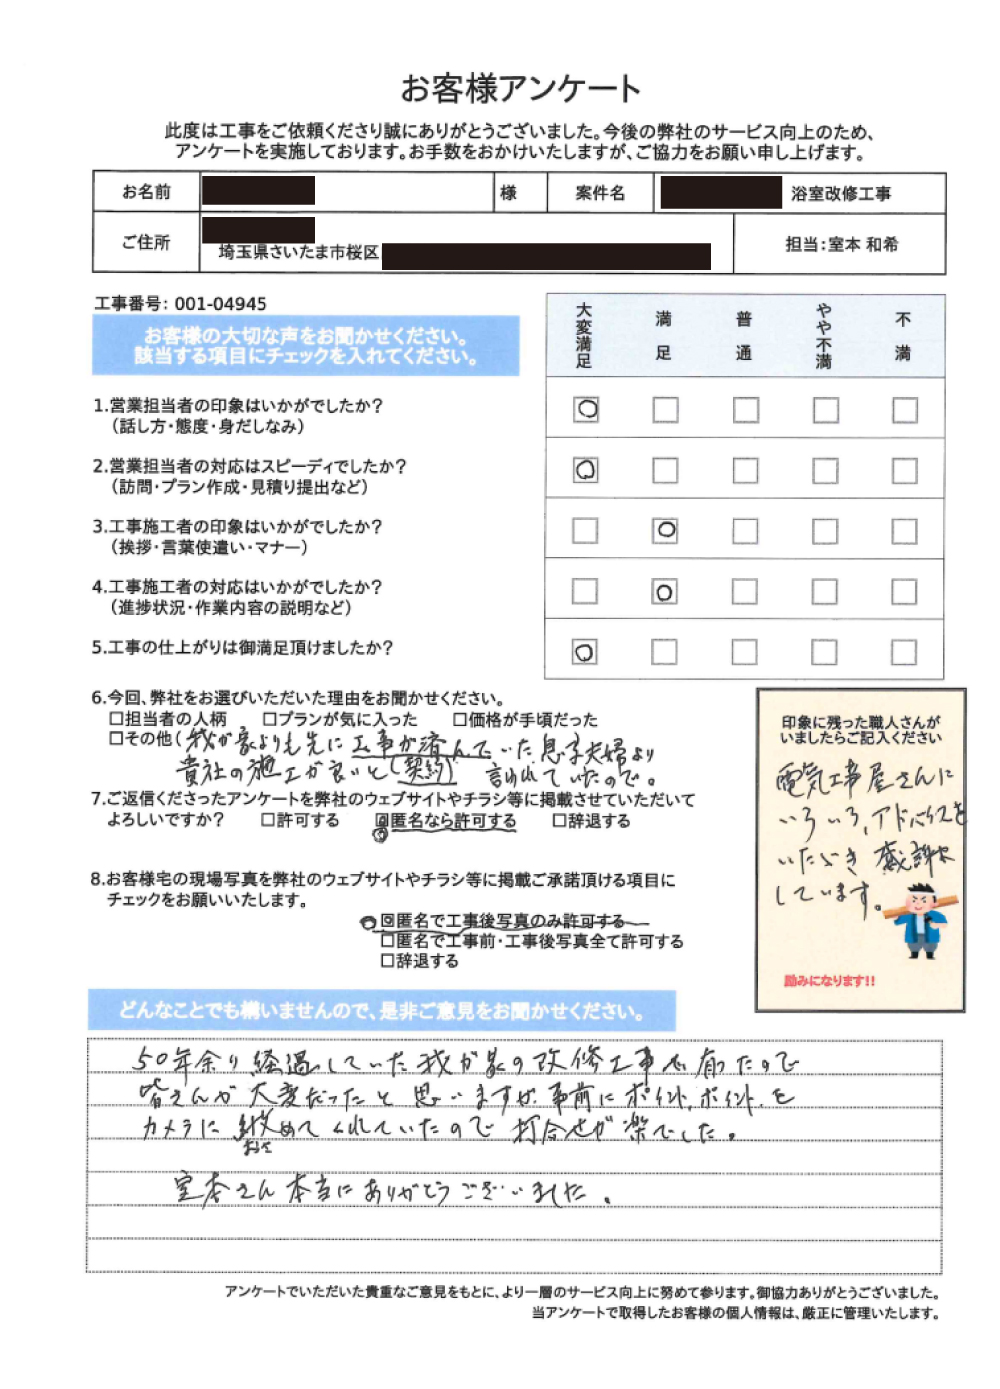 お客様アンケート
此度は工事をご依頼くださり誠にありがとうございました。今後の弊社のサービス向上のため、
アンケートを実施しております。お手数をおかけいたしますが、ご協力をお願い申し上げます。
お名前 様 案件名 浴室改修工事
ご住所 埼玉県さいたま市桜区 担当：室本 和希
工事番号： 001-04945
お客様の大切な声をお聞かせください。
該当する項目にチェックを入れてください。
大変満足 満足 普通 やや不満 不満
1.営業担当者の印象はいかがでしたか？
（話し方・態度・身だしなみ）
2.営業担当者の対応はスピーディでしたか？
（訪問・プラン作成・見積り提出など）
3.工事施工者の印象はいかがでしたか？
（挨拶・言葉使遣い・マナー）
4.工事施工者の対応はいかがでしたか？
（進捗状況・作業内容の説明など）
5.工事の仕上がりは御満足頂けましたか？
6.今回、弊社をお選びいただいた理由をお聞かせください。
□担当者の人柄 □プランが気に入った □価格が手頃だった
□その他（我が家よりも先に工事が済んでいた息子夫婦より
貴社の施工が良いと（契約） 言われていたので。
7.ご返信くださったアンケートを弊社のウェブサイトやチラシ等に掲載させていただいて
よろしいですか？ □許可する □匿名なら許可する □辞退する
8.お客様宅の現場写真を弊社のウェブサイトやチラシ等に掲載ご承諾頂ける項目に
チェックをお願いいたします。
□匿名で工事後写真のみ許可する
□匿名で工事前・工事後写真全て許可する
□辞退する
印象に残った職人さんが
いましたらご記入ください
電気工事屋さんに
いろいろ、アドバイスを
いただき 感謝
しています。
励みになります!!
どんなことでも構いませんので、是非ご意見をお聞かせください。
50年余り経過していた我が家の改修工事で有ったので
皆さんが大変だったと思いますが、事前にポイント、ポイントを
カメラに納めてくれていたので打合せが楽でした。
おさ
室本さん本当にありがとうございました。
アンケートでいただいた貴重なご意見をもとに、より一層のサービス向上に努めて参ります。御協力ありがとうございました。
当アンケートで取得したお客様の個人情報は、厳正に管理いたします。